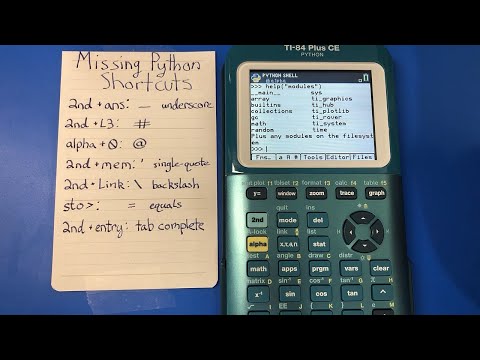 Missing Python
Shortcuts
2nd + ans: _ underscore
2nd + L3: #
alpha + 0: @
2nd + mem: ' single-quote
2nd + Link: \ backslash
sto>: = equals
2nd + entry: tab complete
TI-84 Plus CE
PYTHON
PYTHON SHELL
>>> help("modules")
__main__ sys
array ti_graphics
builtins ti_hub
collections ti_plotlib
gc ti_rover
math ti_system
random time
Plus any modules on the filesyst
em
>>> |
Fns… a A # Tools Editor Files
stat plot f1 tblset f2 format f3 calc f4 table f5
y= window zoom trace graph
quit ins
2nd mode del
A-lock link list
alpha X,T,θ,n stat
test A angle B draw C distr
math apps prgm vars clear
matrix D sin⁻¹ E cos⁻¹ F tan⁻¹ G π H
x⁻¹ sin cos tan ^
√ I EE J { K } L e M